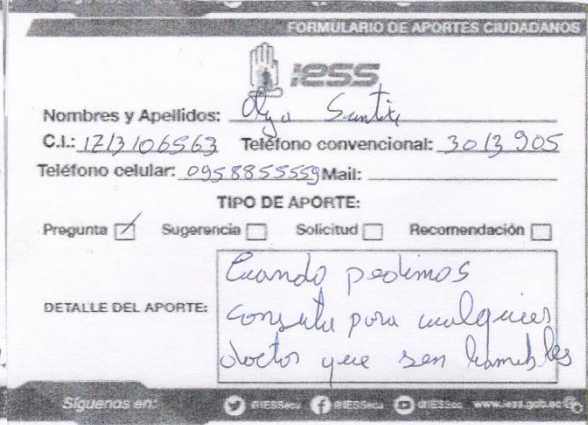 FORMULARIO DE APORTES CIUDADANOS
iess
Nombres y Apellidos: Olga
C.I.: 1713106563 Teléfono convencional: 3013905
Teléfono celular: 0958855559 Mail:
TIPO DE APORTE:
Pregunta Sugerencia Solicitud Recomendación
Cuando pedimos
DETALLE DEL APORTE: consulta para cualquier
doctor que sen
Síguenos en: @IESSecu @IESSecu @IESSec www.iess.gob.ec